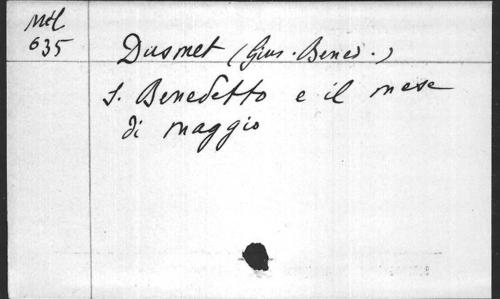 Mél
635
Dusmet (Gius. Bened.)
S. Benedetto e il mese
di maggio